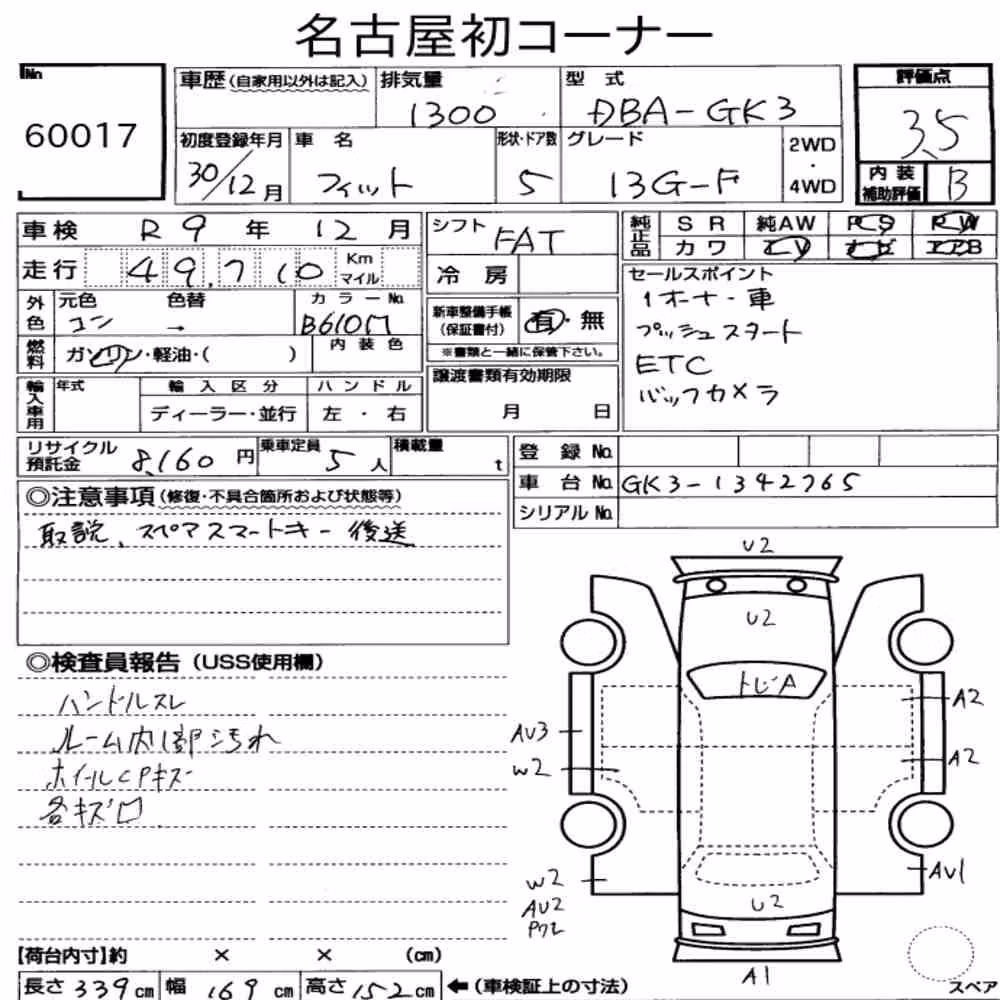 名古屋初コーナー
No.
60017
車歴(自家用以外は記入)
排気量
1300
型 式
DBA-GK3
評価点
3.5
初度登録年月
30/12月
車 名
フィット
形状・ドア数
5
グレード
13G-F
2WD
・
4WD
内 装
補助評価
B
車検 R9 年 12 月
シフト FAT
純正品
S R
純AW
P S
P W
カワ
T V
ナビ
エアB
走行 49,710 Km マイル
冷 房
外色
元色
コン
色替
→
カラーNo.
B610M
新車整備手帳
(保証書付)
有・無
※書類と一緒に保管下さい。
セールスポイント
1オーナー車
プッシュスタート
ETC
バックカメラ
燃料
ガソリン・軽油・( )
内 装 色
譲渡書類有効期限
月 日
輸入車用
年式
輸 入 区 分
ディーラー・並行
ハ ン ド ル
左 ・ 右
リサイクル
預託金
8,160 円
乗車定員
5 人
積載量
t
登 録 No.
車 台 No. GK3-1342765
シリアル No.
◎注意事項(修復・不具合箇所および状態等)
取説、スペアスマートキー後送
◎検査員報告(USS使用欄)
ハンドルスレ
ルーム内1部汚れ
ホイールCPキズ
各キズ凹
U2
U2
トビA
A2
AU3
A2
W2
AU1
W2
AU2
U2
A1
スペア
【荷台内寸】約 × × (cm)
長さ 339 cm 幅 169 cm 高さ 152 cm ←(車検証上の寸法)